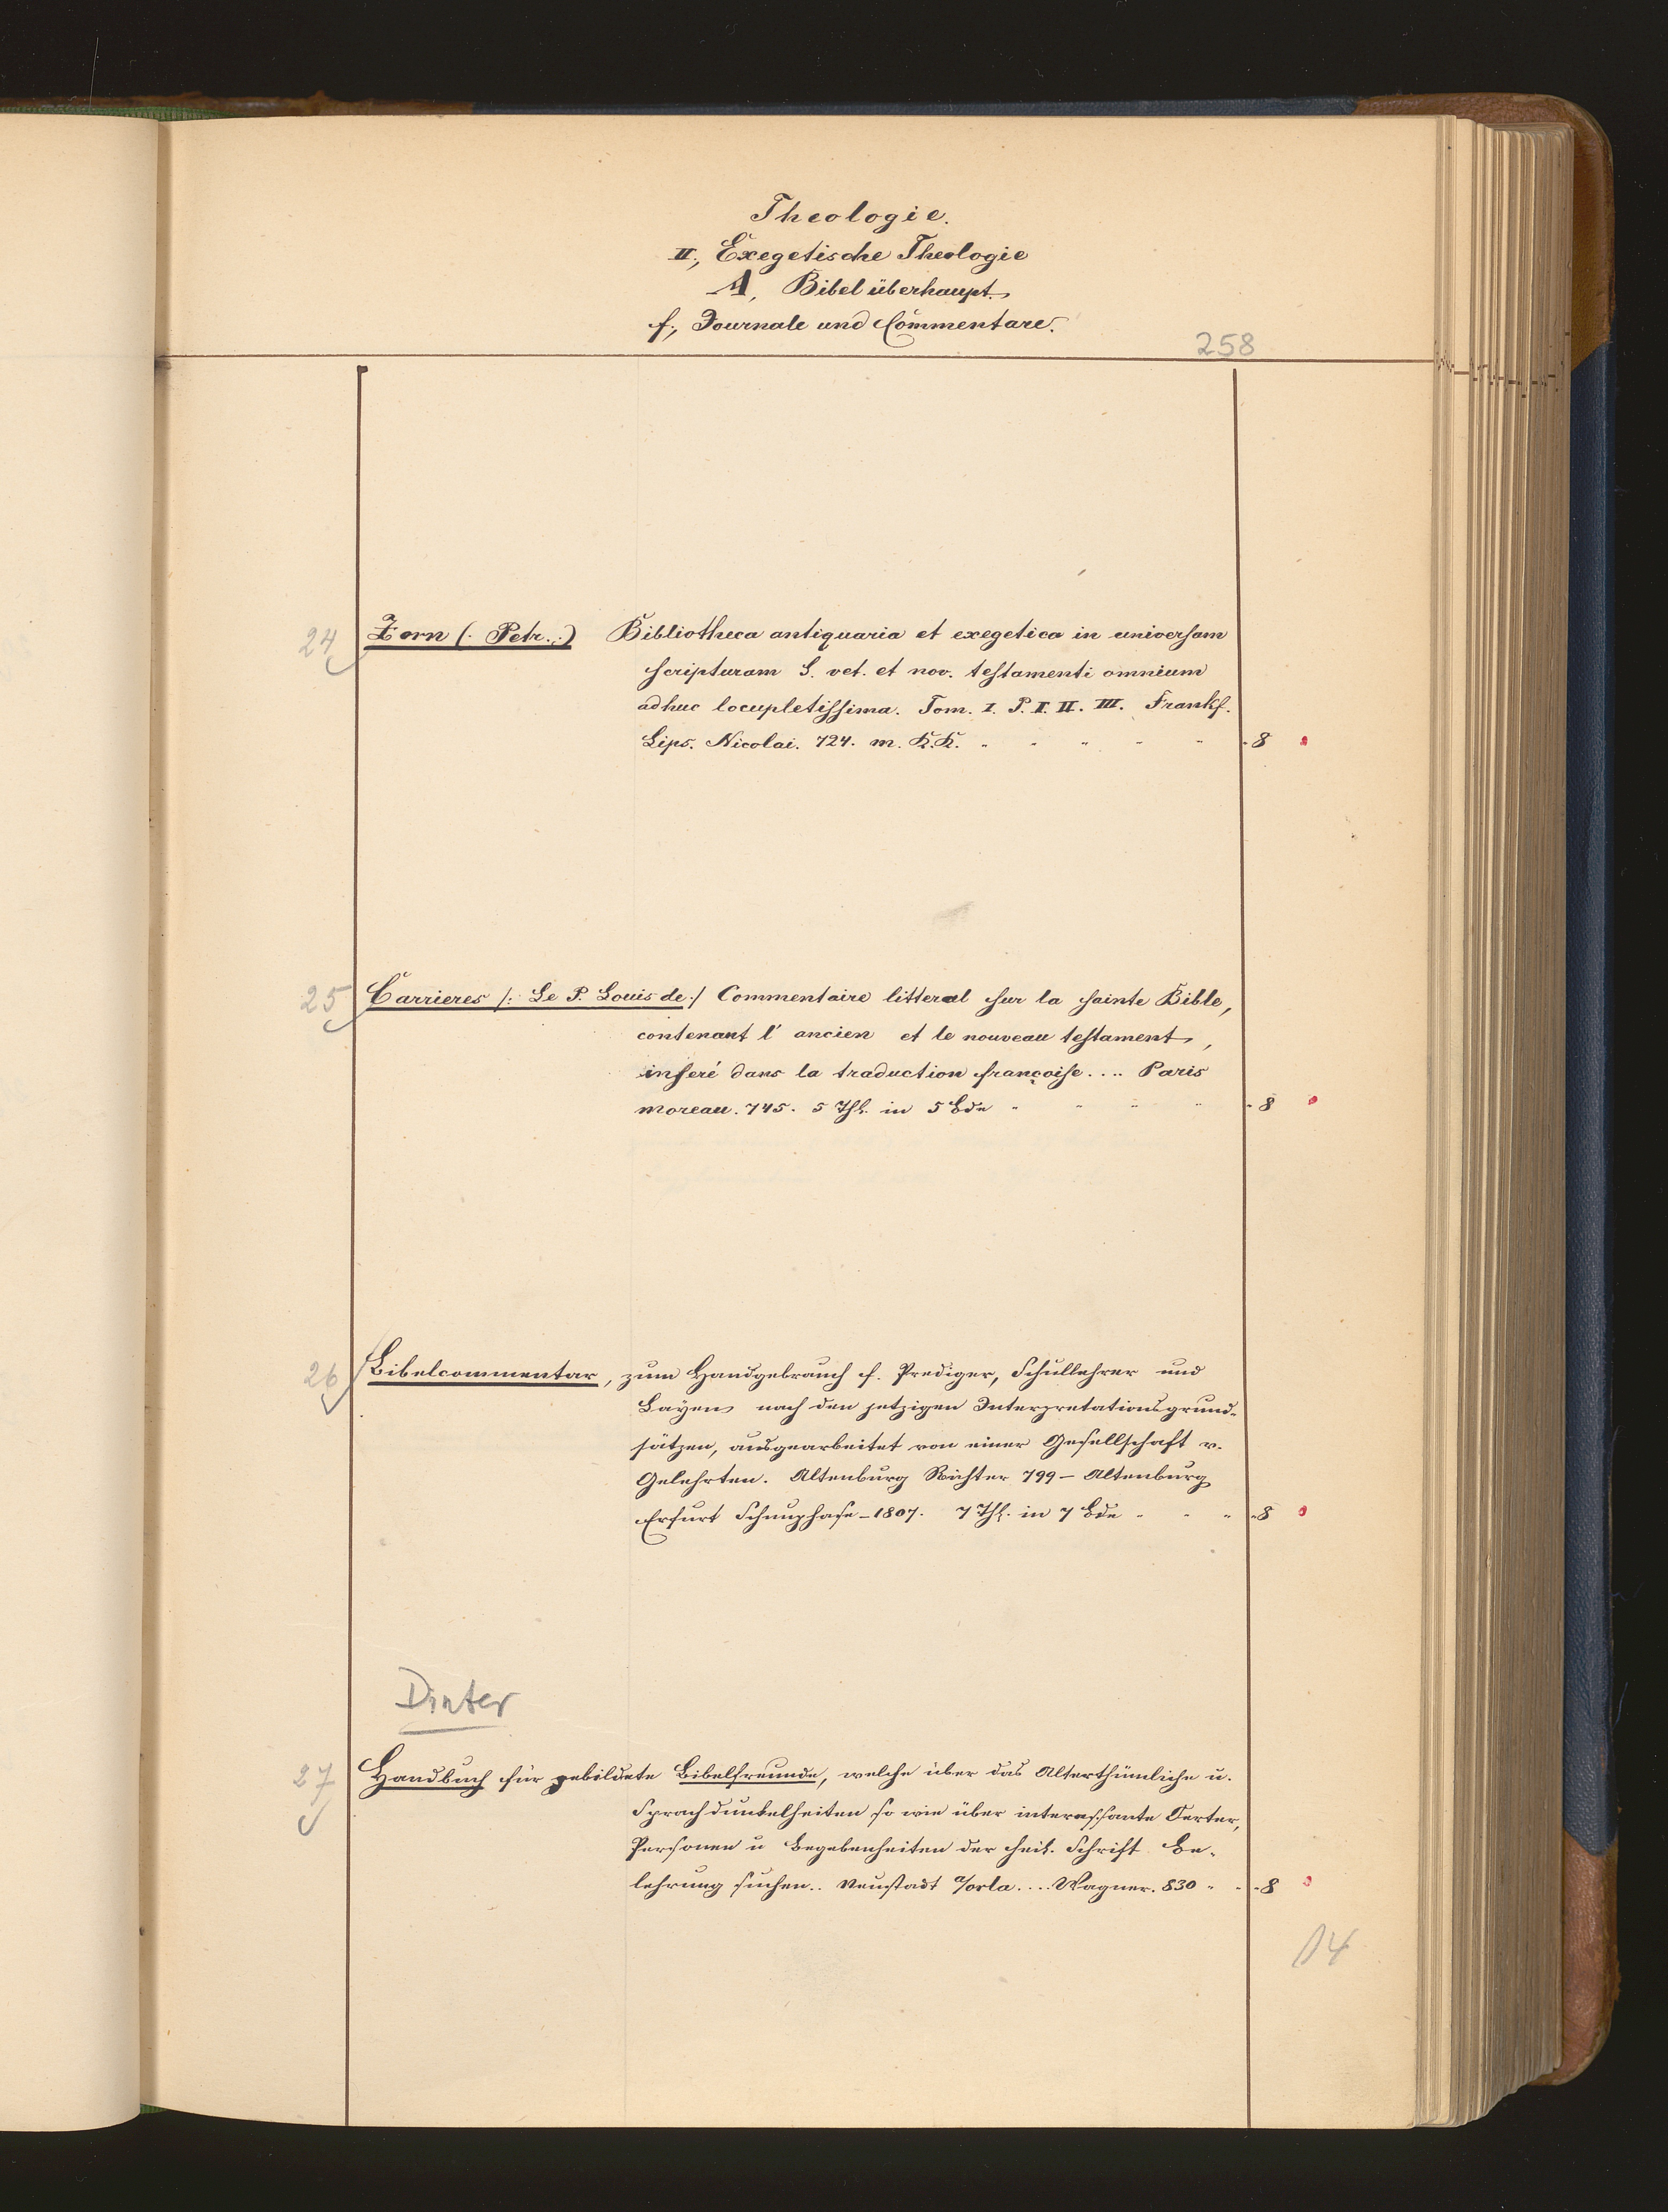 Theologie.
II., Exegetische Theologie
A, Bibel überhaupt.
f., Journale und Commentare.
258
24 Zorn (: Petr. :) Bibliotheca antiquaria et exegetica in universam
scripturam S. vet. et nov. testamenti omnium
adhuc locupletissima. Tom. I. P. I. II. III. Frankf.
Lips. Nicolai. 724. m. K.K. 8
25 Carrieres /: Le P. Louis de :/ Commentaire litteral sur la sainte Bible,
contenant l' ancien et le nouveau testament,
inseré dans la traduction françoise.... Paris
Moreau. 745. 5 Thl. in 5 Bde 8
26 Bibelcommentar, zum Handgebrauch f. Prediger, Schullehrer und
Layen nach den jetzigen Interpretationsgrund-
sätzen, ausgearbeitet von einer Gesellschaft v.
Gelehrten. Altenburg Richter 799 – Altenburg
Erfurt Schnuphase – 1807. 7 Thl. in 7 Bde 8
Dinter
27 Handbuch für gebildete Bibelfreunde, welche über das Alterthümliche u.
Sprachdunkelheiten so wie über interessante Oerter,
Personen u Begebenheiten der heil. Schrift Be-
lehrung suchen.. Neustadt a/orla.... Wagner. 830 8
14